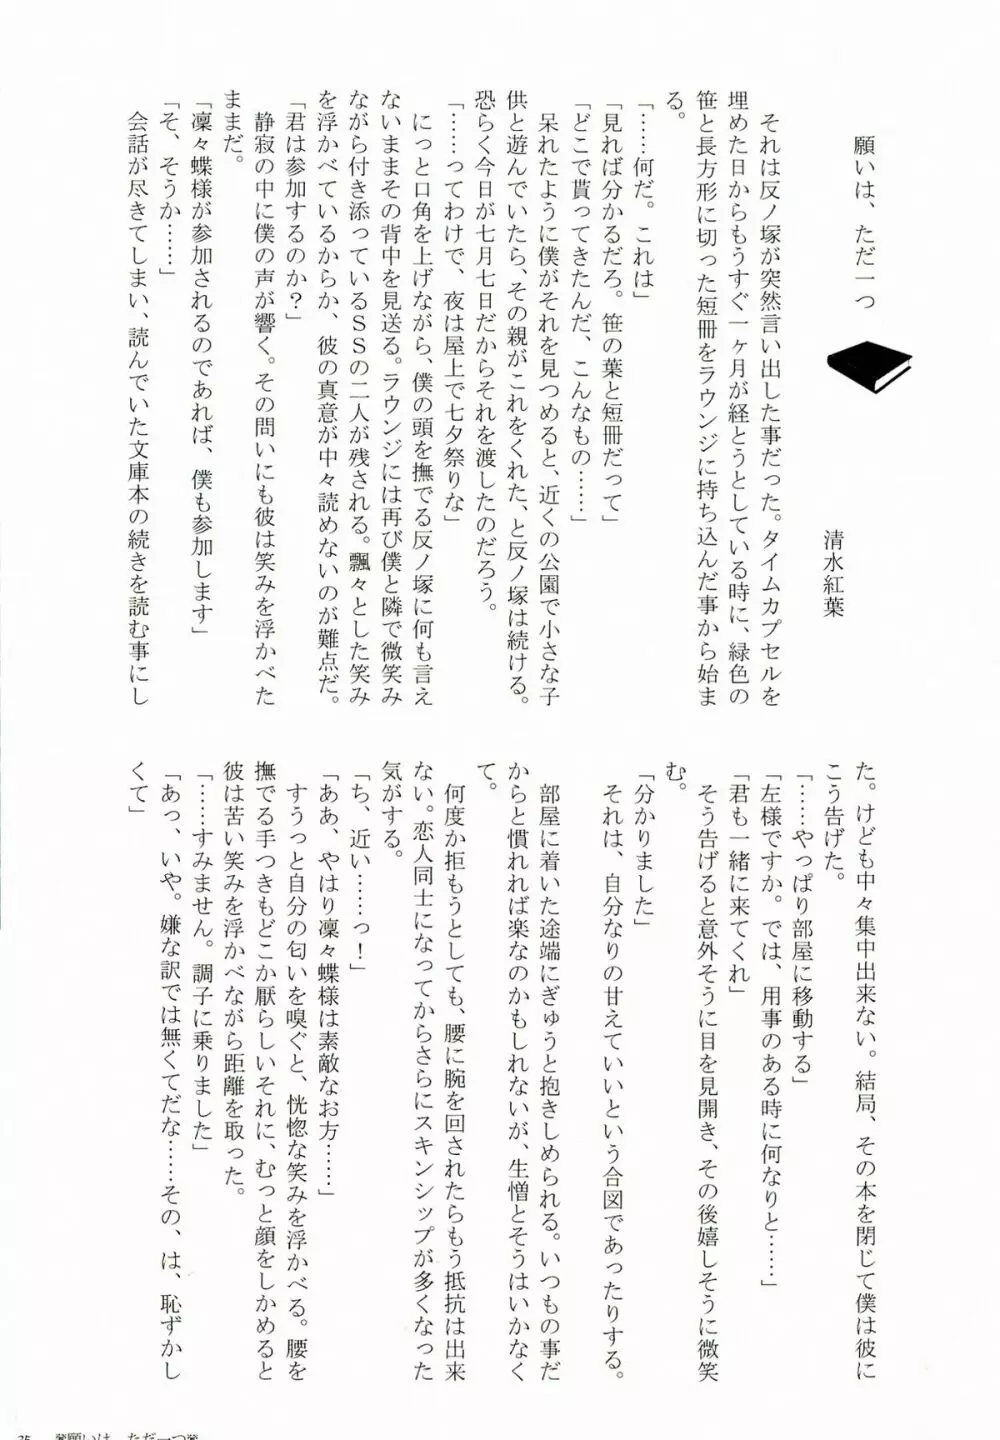 願いは、ただ一つ
清水紅葉
　それは反ノ塚が突然言い出した事だった。タイムカプセルを
埋めた日からもうすぐ一ヶ月が経とうとしている時に、緑色の
笹と長方形に切った短冊をラウンジに持ち込んだ事から始ま
る。
「……何だ。これは」
「見れば分かるだろ。笹の葉と短冊だって」
「どこで貰ってきたんだ、こんなもの……」
　呆れたように僕がそれを見つめると、近くの公園で小さな子
供と遊んでいたら、その親がこれをくれた、と反ノ塚は続ける。
恐らく今日が七月七日だからそれを渡したのだろう。
「……ってわけで、夜は屋上で七夕祭りな」
　にっと口角を上げながら、僕の頭を撫でる反ノ塚に何も言え
ないままその背中を見送る。ラウンジには再び僕と隣で微笑み
ながら付き添っているＳＳの二人が残される。飄々とした笑み
を浮かべているからか、彼の真意が中々読めないのが難点だ。
「君は参加するのか？」
　静寂の中に僕の声が響く。その問いにも彼は笑みを浮かべた
ままだ。
「凜々蝶様が参加されるのであれば、僕も参加します」
「そ、そうか……」
　会話が尽きてしまい、読んでいた文庫本の続きを読む事にし
た。けども中々集中出来ない。結局、その本を閉じて僕は彼に
こう告げた。
「……やっぱり部屋に移動する」
「左様ですか。では、用事のある時に何なりと……」
「君も一緒に来てくれ」
　そう告げると意外そうに目を見開き、その後嬉しそうに微笑
む。
「分かりました」
　それは、自分なりの甘えていいという合図であったりする。
　部屋に着いた途端にぎゅうと抱きしめられる。いつもの事だ
からと慣れれば楽なのかもしれないが、生憎とそうはいかなく
て。
　何度か拒もうとしても、腰に腕を回されたらもう抵抗は出来
ない。恋人同士になってからさらにスキンシップが多くなった
気がする。
「ち、近い……っ！」
「ああ、やはり凜々蝶様は素敵なお方……」
　すうっと自分の匂いを嗅ぐと、恍惚な笑みを浮かべる。腰を
撫でる手つきもどこか厭らしいそれに、むっと顔をしかめると
彼は苦い笑みを浮かべながら距離を取った。
「……すみません。調子に乗りました」
「あっ、いや。嫌な訳では無くてだな……その、は、恥ずかし
くて」
35　※願いは、ただ一つ※